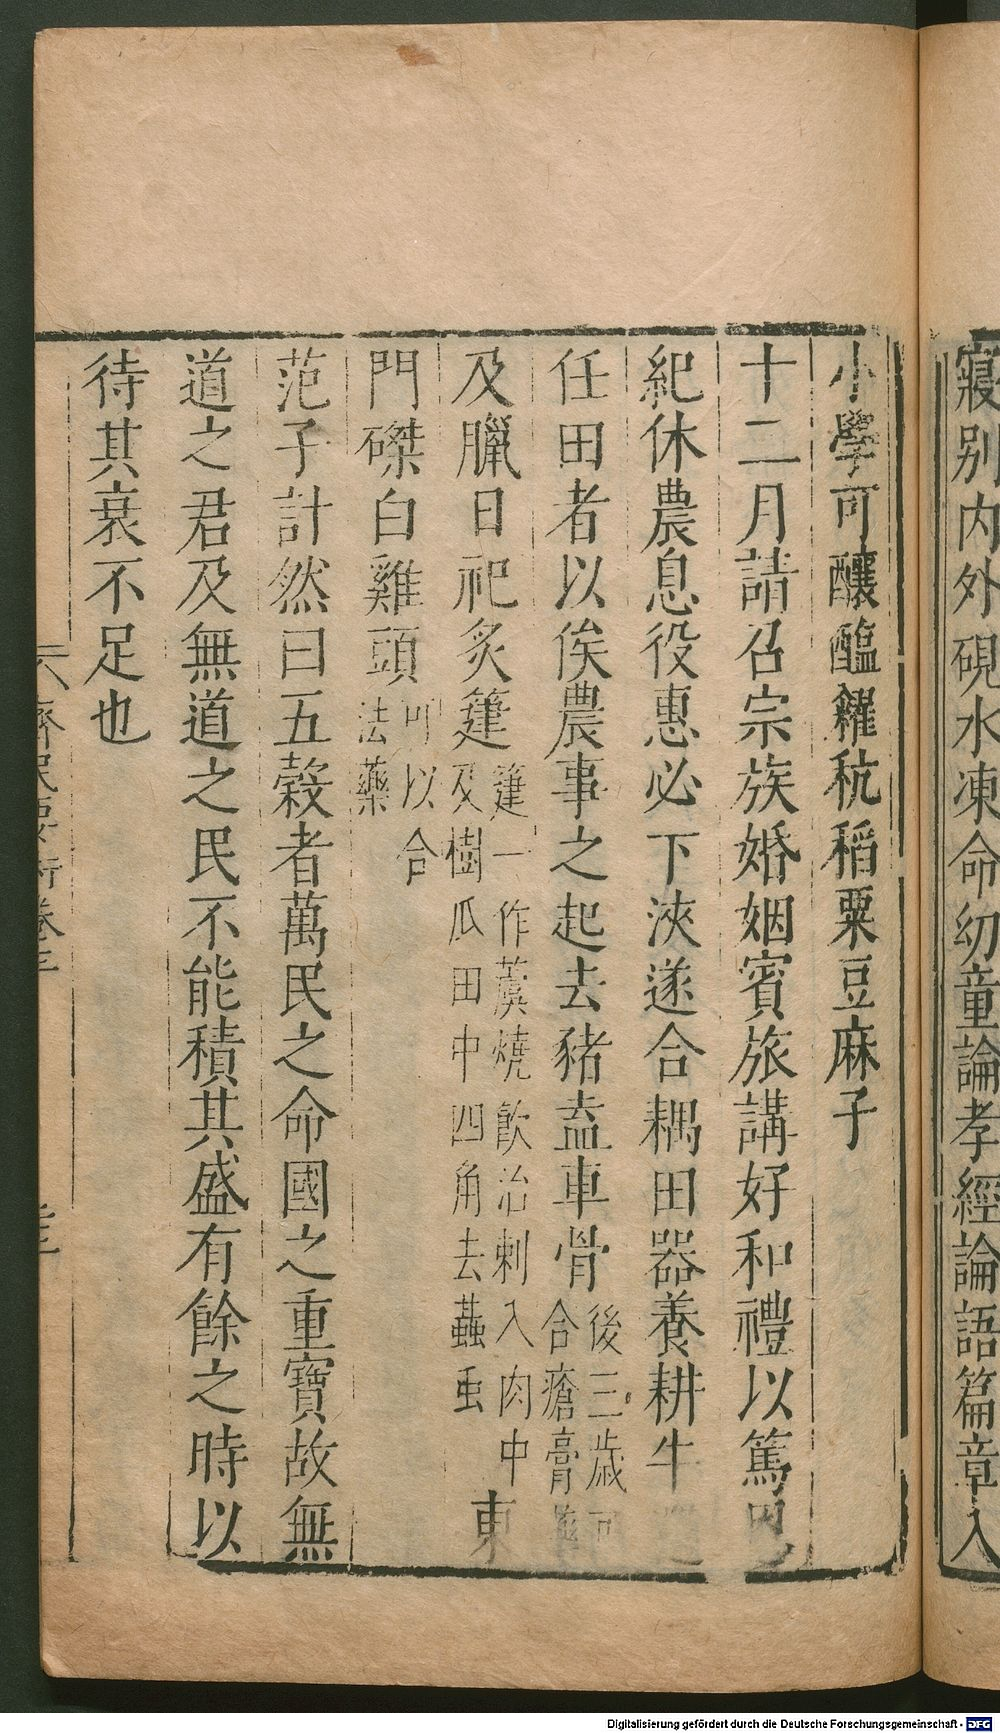 寢別内外硯水凍命幼童論孝經論語篇章入
小學可釀醞糴秔稻粟豆麻子
十二月請召宗族婚姻賓旅講好和禮以篤恩
紀休農息役惠必下浹遂合耦田器養耕牛
任田者以俟農事之起去豬盍車骨後三歲可合瘡膏
及臘日祀炙箑箑一作萐燒飲治刺入肉中及樹瓜田中四角去䖝虫東
門磔白雞頭可以合法藥
范子計然曰五穀者萬民之命國之重寶故無
道之君及無道之民不能積其盛有餘之時以
待其衰不足也
齊民要術卷三
Digitalisierung gefördert durch die Deutsche Forschungsgemeinschaft - DFG